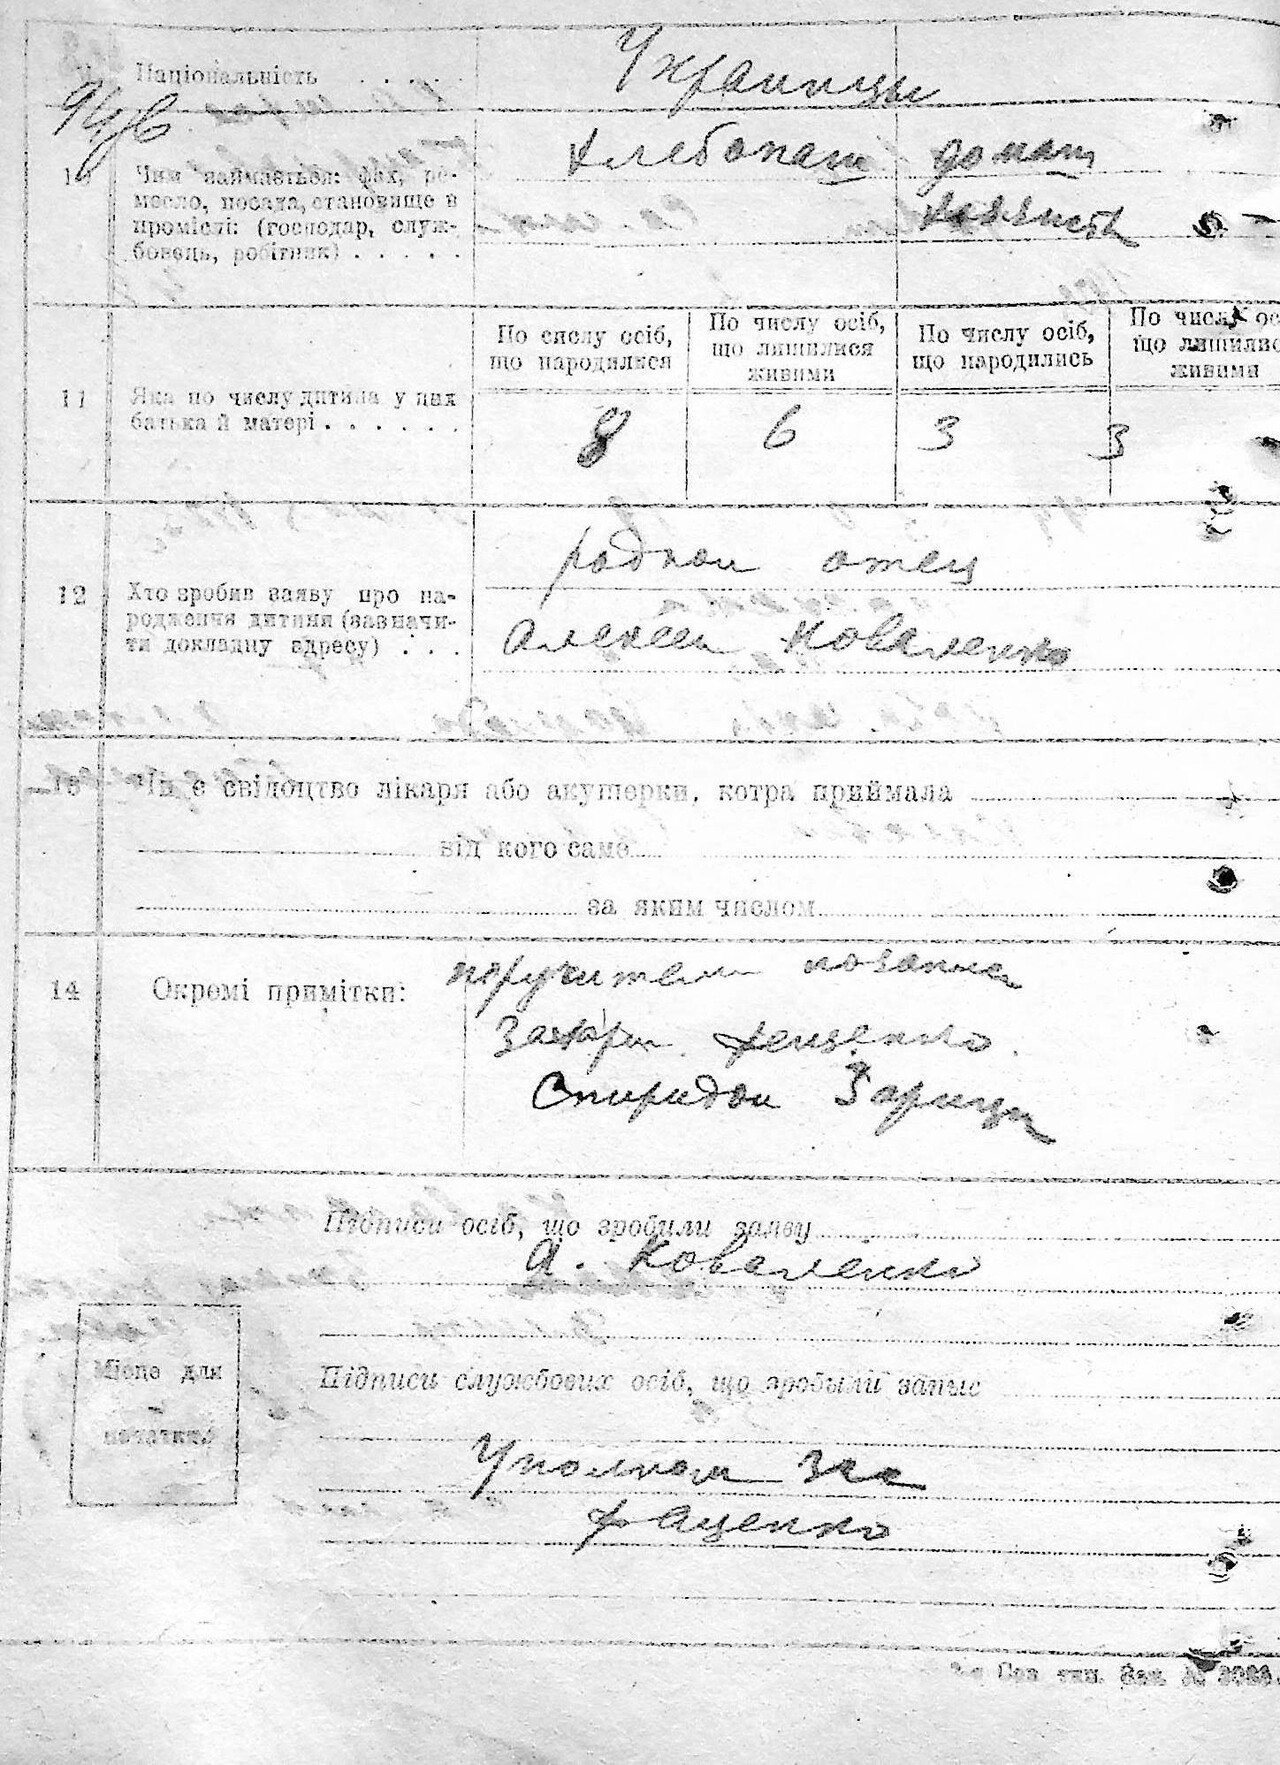 Національність . . . . .
Украинцы
10
Чим займається: фах, ре-
месло, посада, становище в
промислі: (господар, служ-
бовець, робітник) . . . . .
Хлебопаш
домаш
хозяйств
По числу осіб,
що народилися
По числу осіб,
що лишилися
живими
По числу осіб,
що народились
По числу ос
що лишилис
живими
11
Яка по числу дитина у цих
батька й матері . . . . . .
8
6
3
3
12
Хто зробив заяву про на-
родження дитини (зазначи-
ти докладну адресу) . . .
родной отец
Алексей Коваленко
13
Чи є свідоцтво лікаря або акушерки, котра приймала
від кого саме
за яким числом
14
Окромі примітки:
поручители
Спиридон
Підписи осіб, що зробили заяву
А. Коваленко
Місце для
печатки
Підписи службових осіб, що зробили запис
Уполном
Фащенко